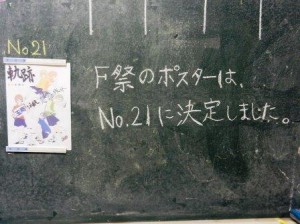 No.21
軌跡
F祭のポスターは、
No.21に決定しました。